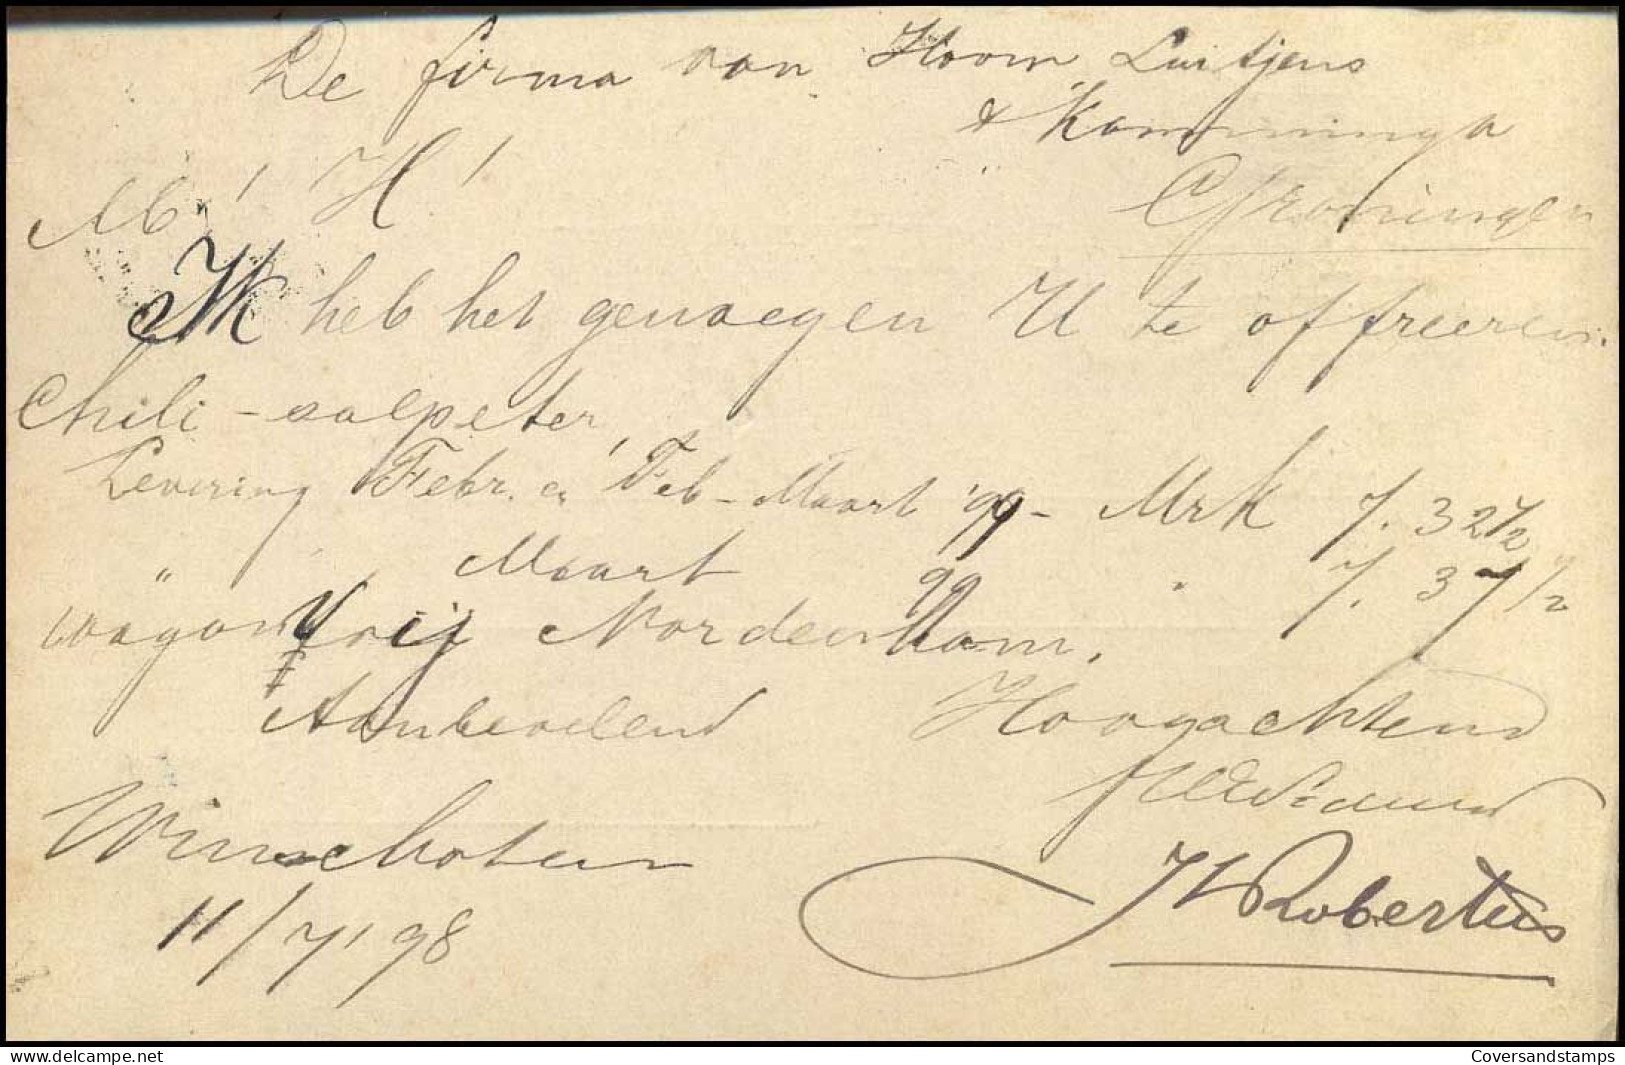 De firma van Hoorn Luitjens
& Kamminga
Groningen
M' H'
Ik heb het genoegen U te offreeren.
Chili-salpeter,
Levering Febr. en Feb-Maart '99 - Mrk 7.32 1/2
" Maart 99 " 7.37 1/2
wagonvrij Nordenham.
Aanbevelend Hoogachtend
UEd Dienaar
Winschoten
11/7 '98
H Robertus
delcampe.net
Coversandstamps